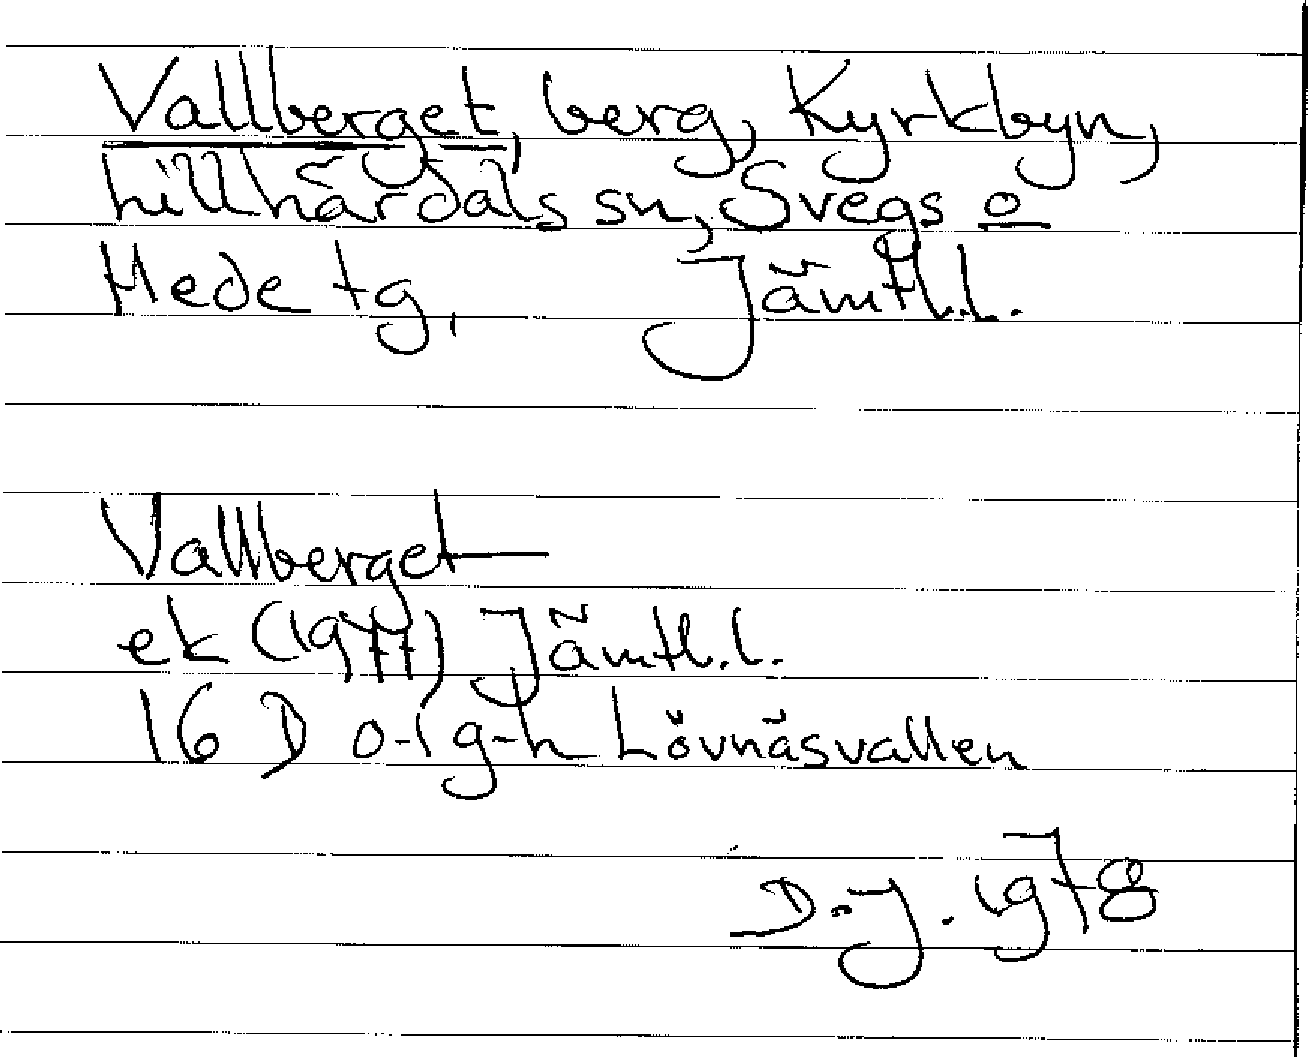 Vallberget, berg, Kyrkbyn,
Lillhärdals sn, Svegs o
Hede tg. Jämtl.l.
Vallberget
ek (1977) Jämtl.l.
16 D o-l g-h Lövnäsvallen
D.J. 1978